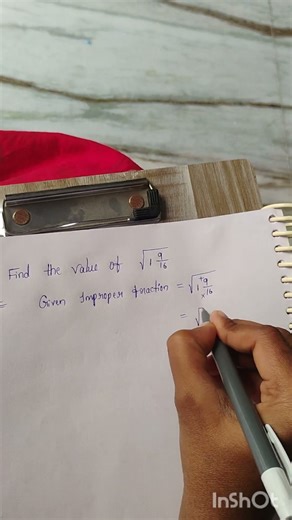 Find the value of √1 9/16
= Given Improper fraction = √1 + 9/× 16
= √
InShOt